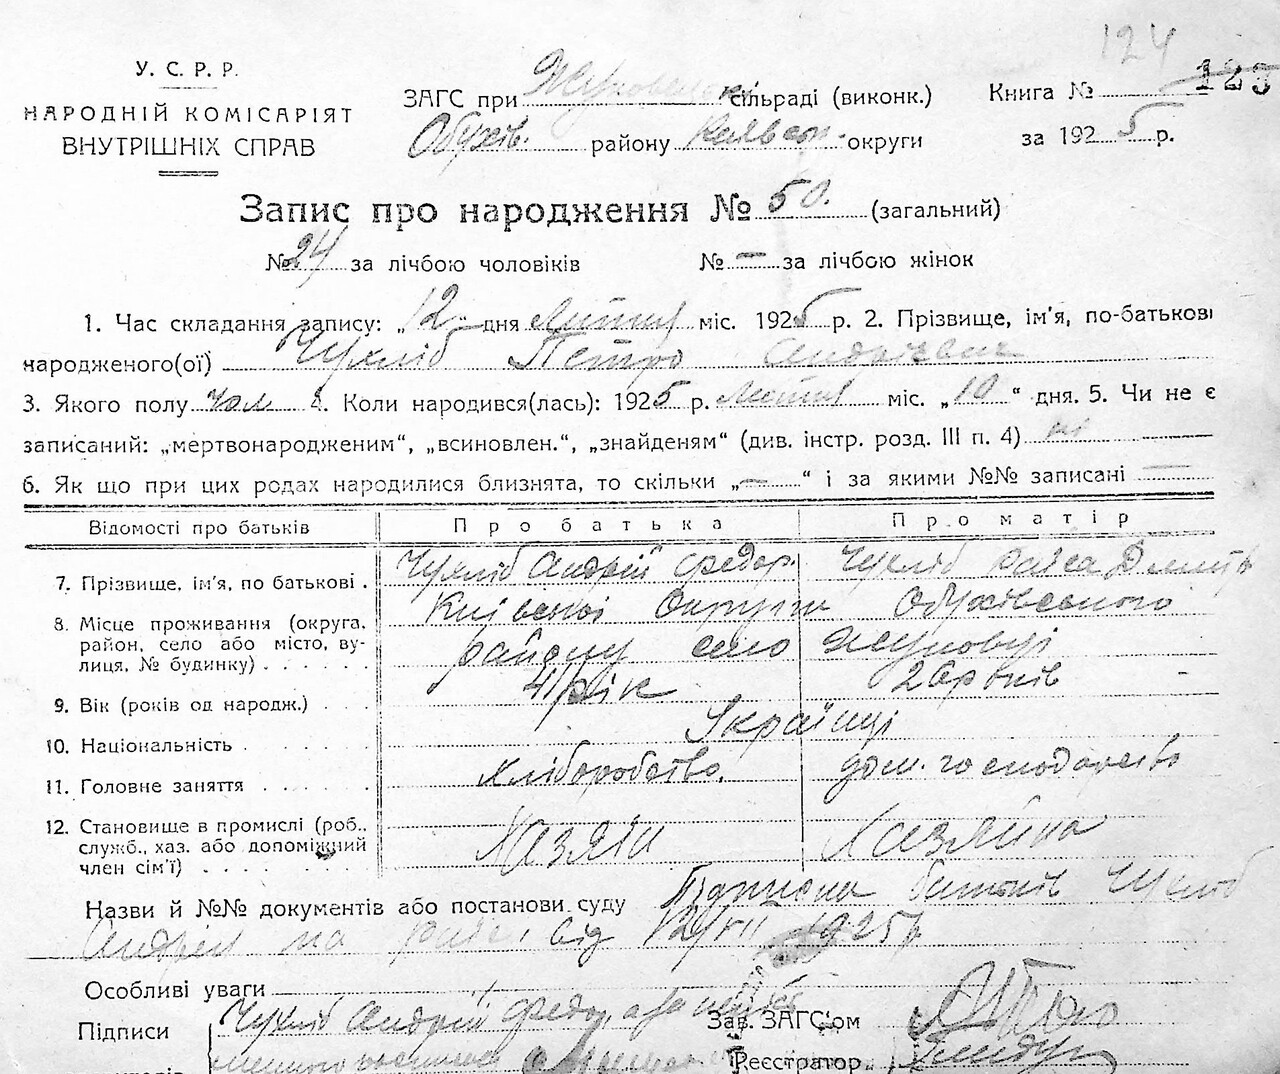 124
У. С. Р. Р.
НАРОДНІЙ КОМІСАРІЯТ
ВНУТРІШНІХ СПРАВ
ЗАГС при сільраді (виконк.)
Книга № 123
Обухів. району округи
за 1925 р.
Запис про народження № 50. (загальний)
№ 24 за лічбою чоловіків № — за лічбою жінок
1. Час складання запису: „12“ дня Липня міс. 1925 р. 2. Прізвище, ім'я, по-батькові
народженого(ої) Чухліб Петро Андрієвич
3. Якого полу чол 4. Коли народився(лась): 1925 р. Липня міс. „10“ дня. 5. Чи не є
записаний: „мертвонародженим“, „всиновлен.“, „знайденям“ (див. інстр. розд. III п. 4) ні
6. Як що при цих родах народилися близнята, то скільки „—“ і за якими №№ записані —
Відомості про батьків Про батька Про матір
7. Прізвище, ім'я, по батькові . Чухліб Андрій Федор. Чухліб Раїса Дмитр
8. Місце проживання (округа, район, село або місто, вулиця, № будинку) . . . . . Київської Округи Обухівського
району село Жуковці
9. Вік (років од народж.) . . . 41 рік 26 років
10. Національність . . . . . . Українці
11. Головне заняття . . . . . . хліборобство. дом. господарство
12. Становище в промислі (роб., служб., хаз. або допоміжний член сім'ї) . . . . . . . . Хазяїн Хазяйка
Назви й №№ документів або постанови суду Підписка батьків Чухліб
Андрія та Раїси від 12/VII 1925 р
Особливі уваги
Підписи Чухліб Андрій Федор. Зав. ЗАГС'ом
Реєстратор